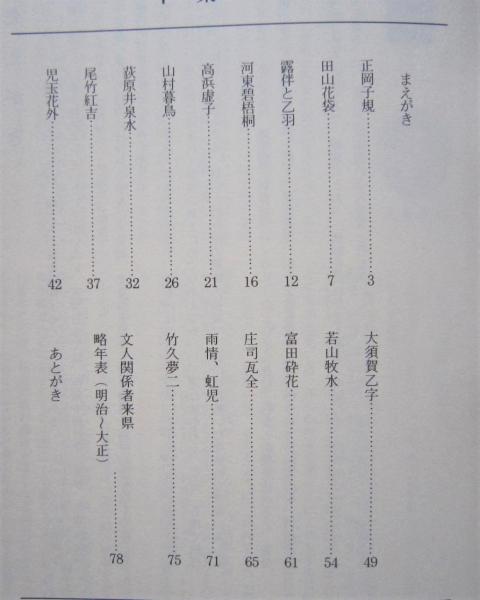 まえがき
正岡子規……3
田山花袋……7
露伴と乙羽……12
河東碧梧桐……16
高浜虚子……21
山村暮鳥……26
荻原井泉水……32
尾竹紅吉……37
児玉花外……42
大須賀乙字……49
若山牧水……54
富田砕花……61
庄司瓦全……65
雨情、虹児……71
竹久夢二……75
文人関係者来県
略年表（明治～大正）……78
あとがき